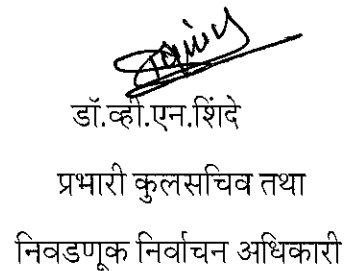 डॉ.व्ही.एन.शिंदे
प्रभारी कुलसचिव तथा
निवडणूक निर्वाचन अधिकारी